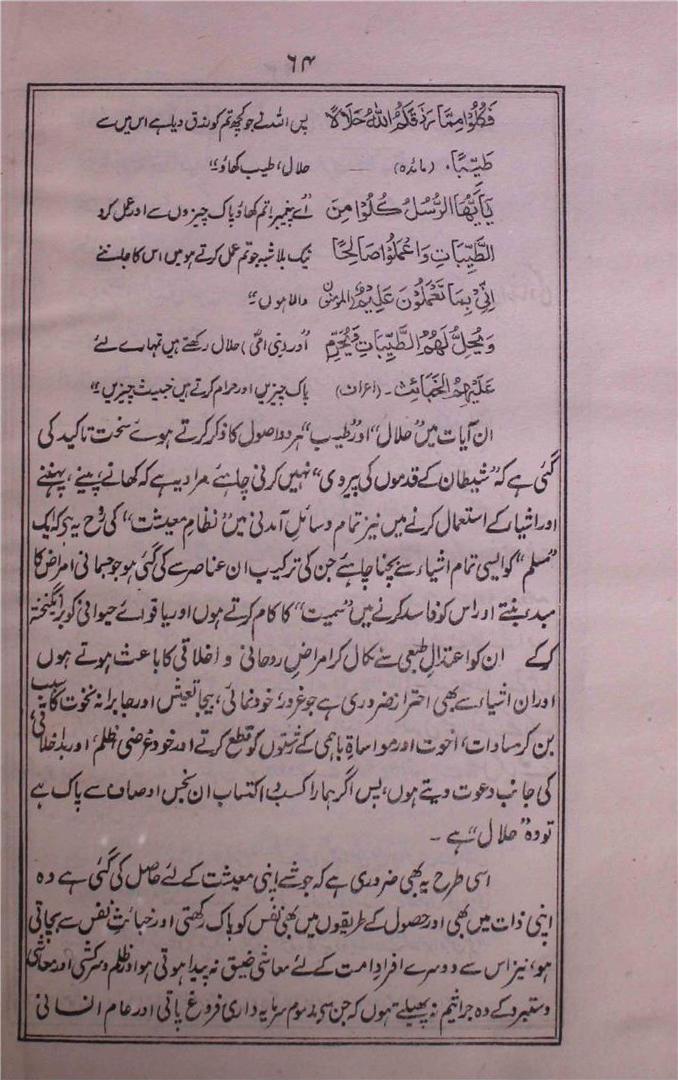 ۶۴
فَكُلُوْا مِمَّا رَزَقَكُمُ اللّٰهُ حَلَالًا پس اللہ نے جو کچھ تم کو رزق دیا ہے اس میں سے
طَيِّبًا۔ (مائدہ) حلال، طیب کھاؤ“
يٰاَيُّهَا الرُّسُلُ كُلُوْا مِنَ ”اے پیغمبر! تم کھاؤ پاک چیزوں سے اور عمل کرو
الطَّيِّبَاتِ وَاعْمَلُوْا صَالِحًا نیک بلاشبہ جو تم عمل کرتے ہو میں اس کا جاننے
اِنِّيْ بِمَا تَعْمَلُوْنَ عَلِيْمٌ (المومنون) والا ہوں“
وَيُحِلُّ لَهُمُ الطَّيِّبَاتِ وَيُحَرِّمُ اور (نبی امّی) حلال رکھتے ہیں تمہارے لئے
عَلَيْهِمُ الْخَبَائِثَ۔ (اعراف) پاک چیزیں اور حرام کرتے ہیں خبیث چیزیں“
ان آیات میں ”حلال“ اور ”طیب“ ہر دو اصول کا ذکر کرتے ہوئے سخت تاکید کی
گئی ہے کہ ”شیطان کے قدموں کی پیروی“ نہیں کرنی چاہئے مراد یہ ہے کہ کھانے، پینے، پہننے
اور اشیاء کے استعمال کرنے میں نیز تمام وسائل آمدنی میں ”نظامِ معیشت“ کی روح یہ ہے کہ ایک
”مسلم“ کو ایسی تمام اشیاء سے بچنا چاہئے جن کی ترکیب ان عناصر سے کی گئی ہو جو جسمانی امراض کا
مبدء بنتے اور اس کو فاسد کرنے میں ”سمیت“ کا کام کرتے ہوں اور یا قوائے حیوانی کو برانگیختہ
کرکے ان کو اعتدالِ طبعی سے نکال کر امراضِ روحانی و اخلاقی کا باعث ہوتے ہوں
اور ان اشیاء سے بھی احتراز ضروری ہے جو غرور، خودنمائی، بیجا تعیش اور جابرانہ نخوت کا سبب
بن کر مساوات، اخوت اور مواساۃِ باہمی کے رشتوں کو قطع کرتے اور خودغرضی، ظلم، اور بداخلاقی،
کی جانب دعوت دیتے ہوں، پس اگر ہمارا کسب و اکتساب ان نجس اوصاف سے پاک ہے
تو وہ ”حلال“ ہے۔
اسی طرح یہ بھی ضروری ہے کہ جو شے اپنی معیشت کے لئے حاصل کی گئی ہے وہ
اپنی ذات میں بھی اور حصول کے طریقوں میں بھی نفس کو پاک رکھتی اور خباثتِ نفس سے بچاتی
ہو، نیز اس سے دوسرے افرادِ امت کے لئے معاشی ضیق نہ پیدا ہوتی ہو اور ظلم و سرکشی اور معاشی
دستبرد کے وہ جراثیم نہ پھیلتے ہوں کہ جن سے مذموم سرمایہ داری فروغ پاتی اور عام انسانی